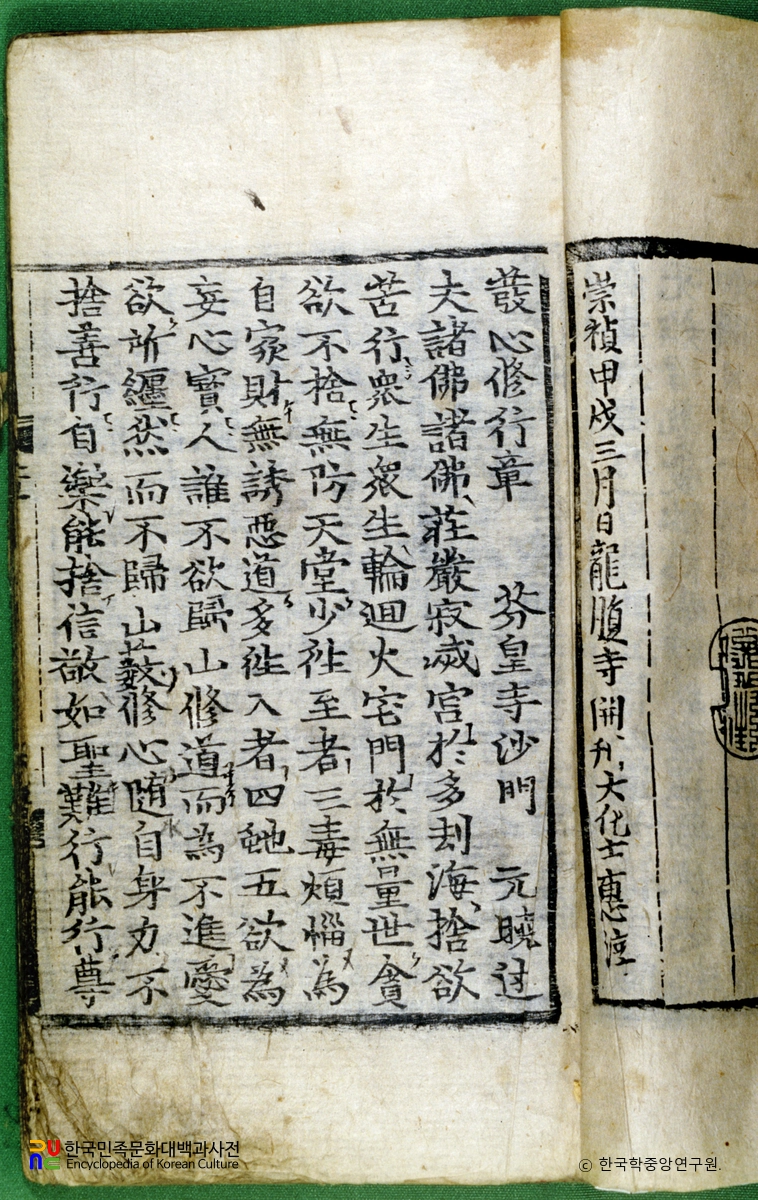 崇禎甲戌三月日龍腹寺開刊大化士惠
發心修行章 芬皇寺沙門 元曉述
夫諸佛諸佛莊嚴寂滅宮於多刼海捨欲
苦行衆生衆生輪迴火宅門於無量世貪
欲不捨無防天堂少徃至者三毒煩惱為
自家財無誘惡道多徃入者四虵五欲為
妄心寶人誰不欲歸山修道而為不進愛
欲所纒然而不歸山藪修心随自身力不
捨善行自樂能捨信敬如聖難行能行尊
한국민족문화대백과사전
Encyclopedia of Korean Culture
© 한국학중앙연구원.